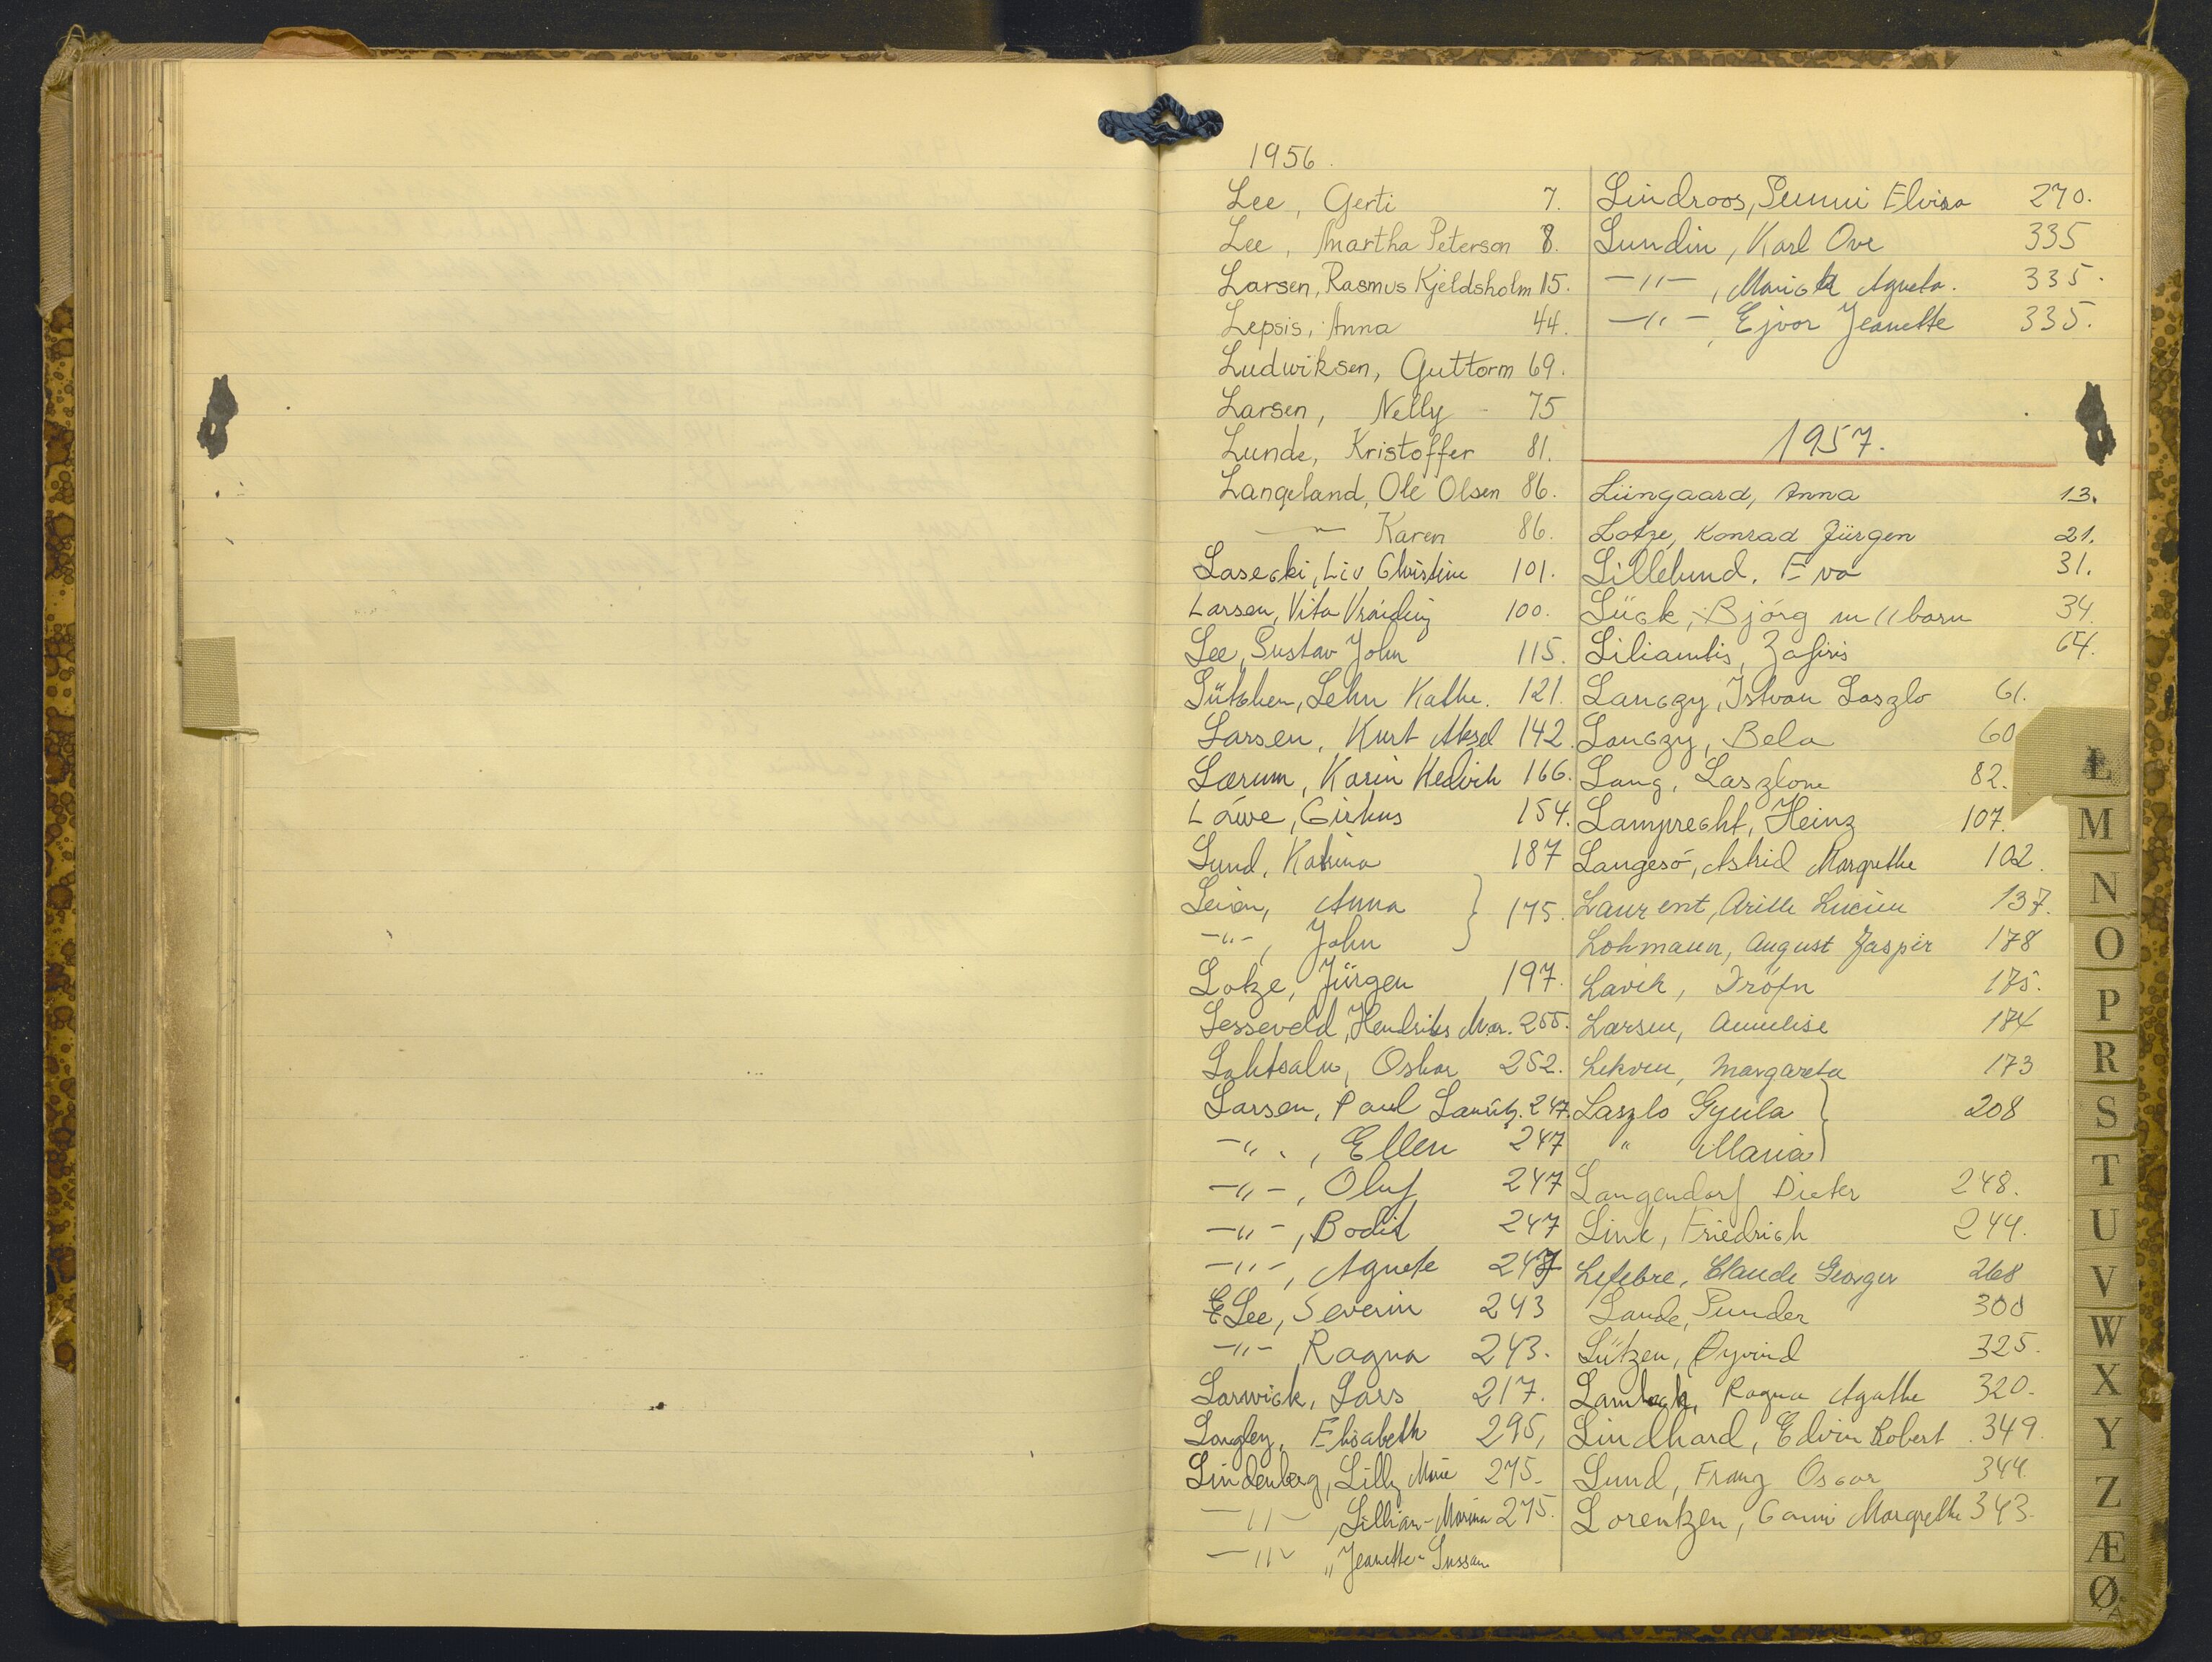 1956.
Lee, Gerti 7.
Lee, Martha Peterson 8.
Larsen, Rasmus Kjeldsholm 15.
Lepsis, Anna 44.
Ludwiksen, Guttorm 69.
Larsen, Nelly - 75
Lunde, Kristoffer 81.
Langeland, Ole Olsen 86.
—"— Karen 86.
Lasecki, Liv Christine 101.
Larsen, Vita 100.
Lee, Gustav John 115.
Lütchen, Lehn Kathe. 121.
Larsen, Kurt Aksel 142.
Lærum, Karin Hedvik 166.
Löwe, Cirkus 154.
Lund, Katrina 187
Leion, Anna } 175.
-"-, John
Lotze, Jürgen 197.
Lesseveld, Hendrikus Mar. 255.
Lahtsalu, Oskar 252.
Larsen, Paul 247.
-"-, Ellen 247
-"-, Oluf 247
-"-, Bodil 247
-"-, Agnete 247
Lee, Severin 243
-"- Ragna 243.
Larwick, Lars 217.
Longley, Elisabeth 295,
Lindenberg, Lilly Marie 275.
—"—, Lillian-Marina 275.
—"— „Jeanette-Sussan
Lindroos, Sunni Elvira 270.
Lundin, Karl Ove 335
—"—, Agneta. 335.
—"—, Ejvor Jeanette 335.
1957.
Lüngaard, Anna 13.
Lotze, Konrad Jürgen 21.
Lillelund, Eva 31.
Lück, Bjørg m/1 barn 34.
Liliantis, Zafiris 64.
Lanczy, Istvan Laszlo 61.
Lanczy, Bela 60
Lang, Laszlone 82.
Lamprecht, Heinz 107.
Langesö, Astrid Margrethe 102.
Laurent, Lucien 137.
Lohmann, August Jaspir 178
Lavik, Dröfn 175.
Larsen, Annelise 174
Lekven, Margareta 173
Laszlo Gyula } 208
" Maria
Langendorf Dieter 248.
Link, Friedrich 244.
Lefebre, Claude Georges 268
Lande, Gunder 300
Lützen, Øyvind 325.
Ragna Agathe 320.
Lindhard, Edvin Robert 349.
Lund, Franz Oscar 344.
Lorentzen, Conni Margrethe 343.
L
M
N
O
P
R
S
T
U
V
W
X
Y
Z
Æ
Ø
Å